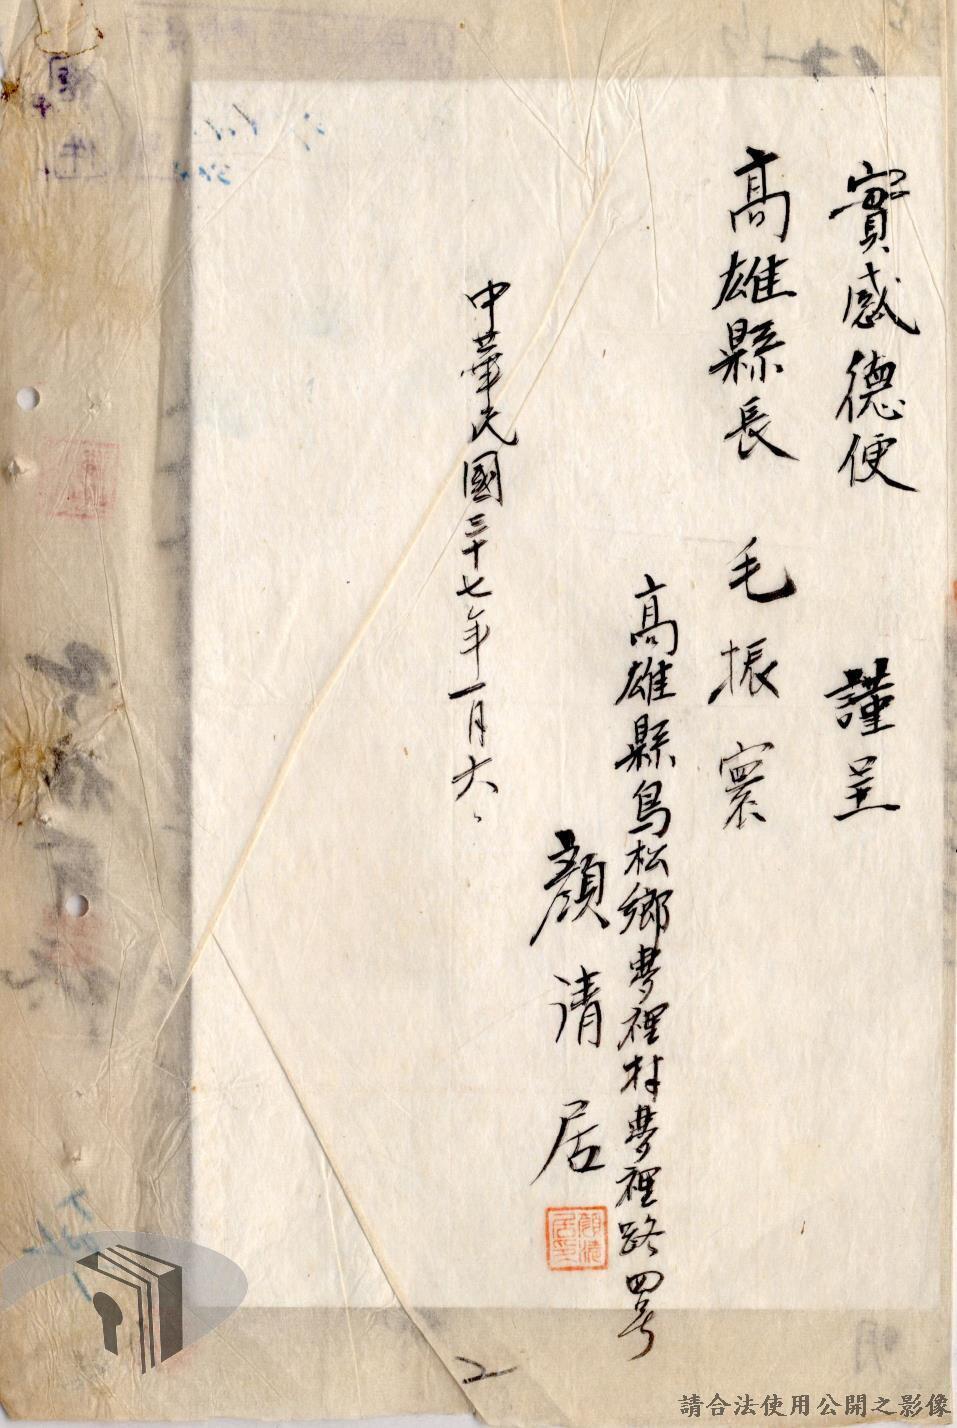 實感德便　謹呈
高雄縣長　毛振寰
高雄縣鳥松鄉夢裡村夢裡路四号
顏清居
中華民國三十七年一月六、
2
請合法使用公開之影像